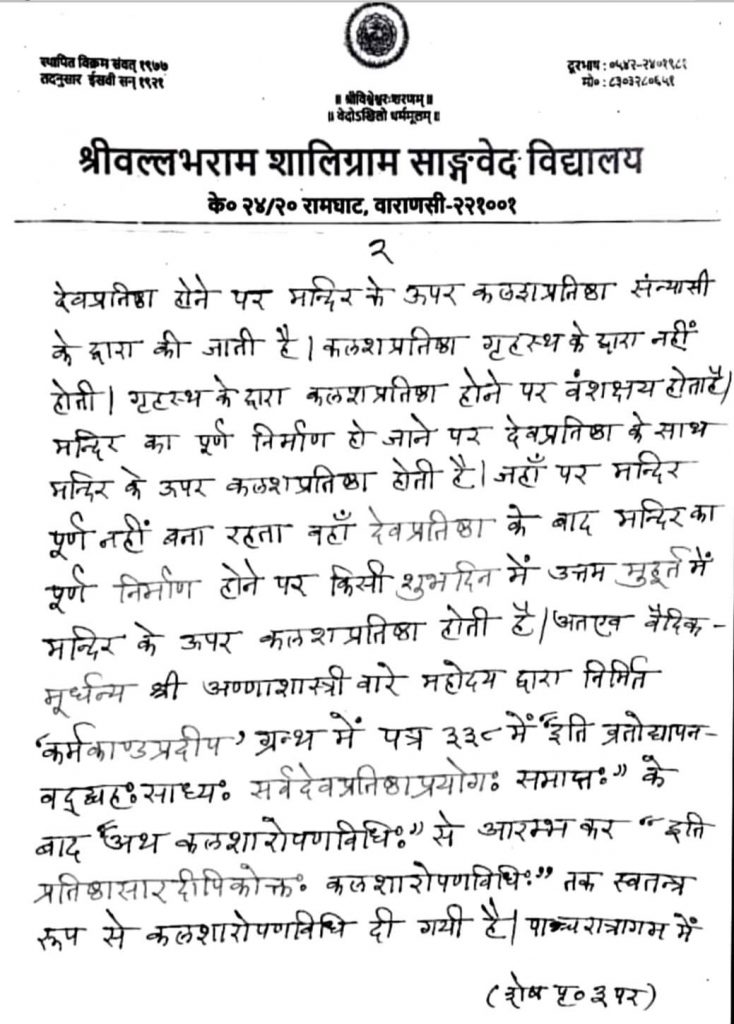 स्थापित विक्रम संवत् १९७७
तदनुसार ईसवी सन् १९२१
दूरभाष : ०५४२-२४०१९८६
मो० : ८३०३२८०६५१
॥ श्रीविश्वेश्वरः शरणम् ॥
॥ वेदोऽखिलो धर्ममूलम् ॥
श्रीवल्लभराम शालिग्राम साङ्गवेद विद्यालय
के० २४/२० रामघाट, वाराणसी-२२१००१
२
देवप्रतिष्ठा होने पर मन्दिर के ऊपर कलशप्रतिष्ठा संन्यासी
के द्वारा की जाती है। कलशप्रतिष्ठा गृहस्थ के द्वारा नहीं
होती। गृहस्थ के द्वारा कलशप्रतिष्ठा होने पर वंशक्षय होता है।
मन्दिर का पूर्ण निर्माण हो जाने पर देवप्रतिष्ठा के साथ
मन्दिर के ऊपर कलशप्रतिष्ठा होती है। जहाँ पर मन्दिर
पूर्ण नहीं बना रहता वहाँ देवप्रतिष्ठा के बाद मन्दिर का
पूर्ण निर्माण होने पर किसी शुभदिन में उत्तम मुहूर्त में
मन्दिर के ऊपर कलशप्रतिष्ठा होती है। अतएव वैदिक-
मूर्धन्य श्री अण्णाशास्त्री वारे महोदय द्वारा निर्मित
'कर्मकाण्डप्रदीप' ग्रन्थ में पत्र ३३८ में "इति व्रतोद्यापन-
वद्द्व्यहःसाध्यः सर्वदेवप्रतिष्ठाप्रयोगः समाप्तः" के
बाद "अथ कलशारोपणविधिः" से आरम्भ कर "इति
प्रतिष्ठासारदीपिकोक्तः कलशारोपणविधिः" तक स्वतन्त्र
रूप से कलशारोपणविधि दी गयी है। पाञ्चरात्रागम में
(शेष पृ० ३ पर)